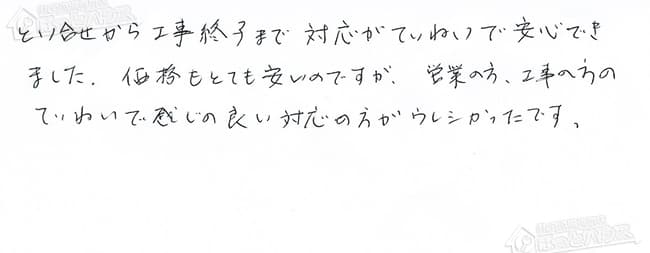 とい合せから工事終了まで対応がていねいで安心でき
ました。価格もとても安いのですが、営業の方、工事の方の
ていねいで感じの良い対応の方がウレシかったです。
ほっとハウス